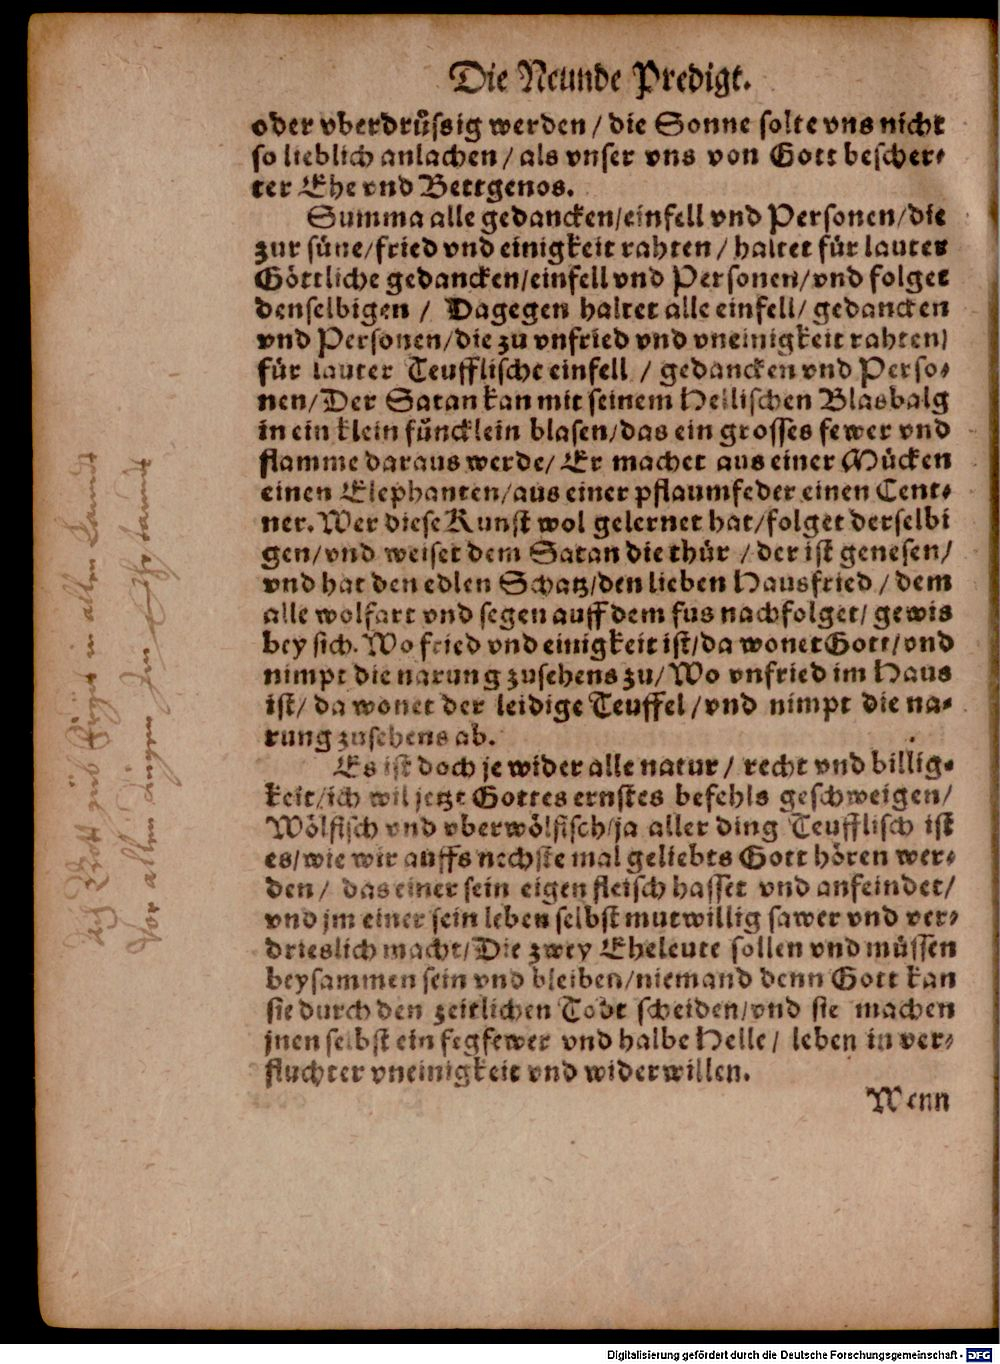 Die Neunde Predigt.
oder vberdrüssig werden / die Sonne solte vns nicht
so lieblich anlachen / als vnser vns von Gott bescher-
ter Ehe vnd Bettgenos.
Summa alle gedancken/einfell vnd Personen/die
zur süne/fried vnd einigkeit rahten / haltet für lauter
Göttliche gedancken/einfell vnd Personen/vnd folget
denselbigen / Dagegen haltet alle einfell/ gedancken
vnd Personen/die zu vnfried vnd vneinigkeit rahten/
für lauter Teufflische einfell / gedancken vnd Perso-
nen/Der Satan kan mit seinem Hellischen Blasbalg
in ein klein füncklein blasen/das ein grosses fewer vnd
flamme daraus werde/ Er machet aus einer Mücken
einen Elephanten/aus einer pflaumfeder einen Cent-
ner. Wer diese Kunst wol gelernet hat/folget derselbi
gen/vnd weiset dem Satan die thür / der ist genesen/
vnd hat den edlen Schatz/den lieben Hausfried / dem
alle wolfart vnd segen auff dem fus nachfolget/ gewis
bey sich. Wo fried vnd einigkeit ist/da wonet Gott/vnd
nimpt die narung zusehens zu/ Wo vnfried im Haus
ist/ da wonet der leidige Teuffel/vnd nimpt die na-
rung zusehens ab.
Es ist doch je wider alle natur / recht vnd billig-
keit/ich wil jetzt Gottes ernstes befehls geschweigen/
Wölfisch vnd vberwölfisch/ja aller ding Teufflisch ist
es/wie wir auffs nechste mal geliebts Gott hören wer-
den/ das einer sein eigen fleisch hasset vnd anfeindet/
vnd jm einer sein leben selbst mutwillig sawer vnd ver-
drieslich macht/Die zwey Eheleute sollen vnd müssen
beysammen sein vnd bleiben/niemand denn Gott kan
sie durch den zeitlichen Todt scheiden/vnd sie machen
jnen selbst ein fegfewer vnd halbe Helle/ leben in ver-
fluchter vneinigkeit vnd widerwillen.
Wenn
in allen
Vor allen dingen
Digitalisierung gefördert durch die Deutsche Forschungsgemeinschaft - DFG